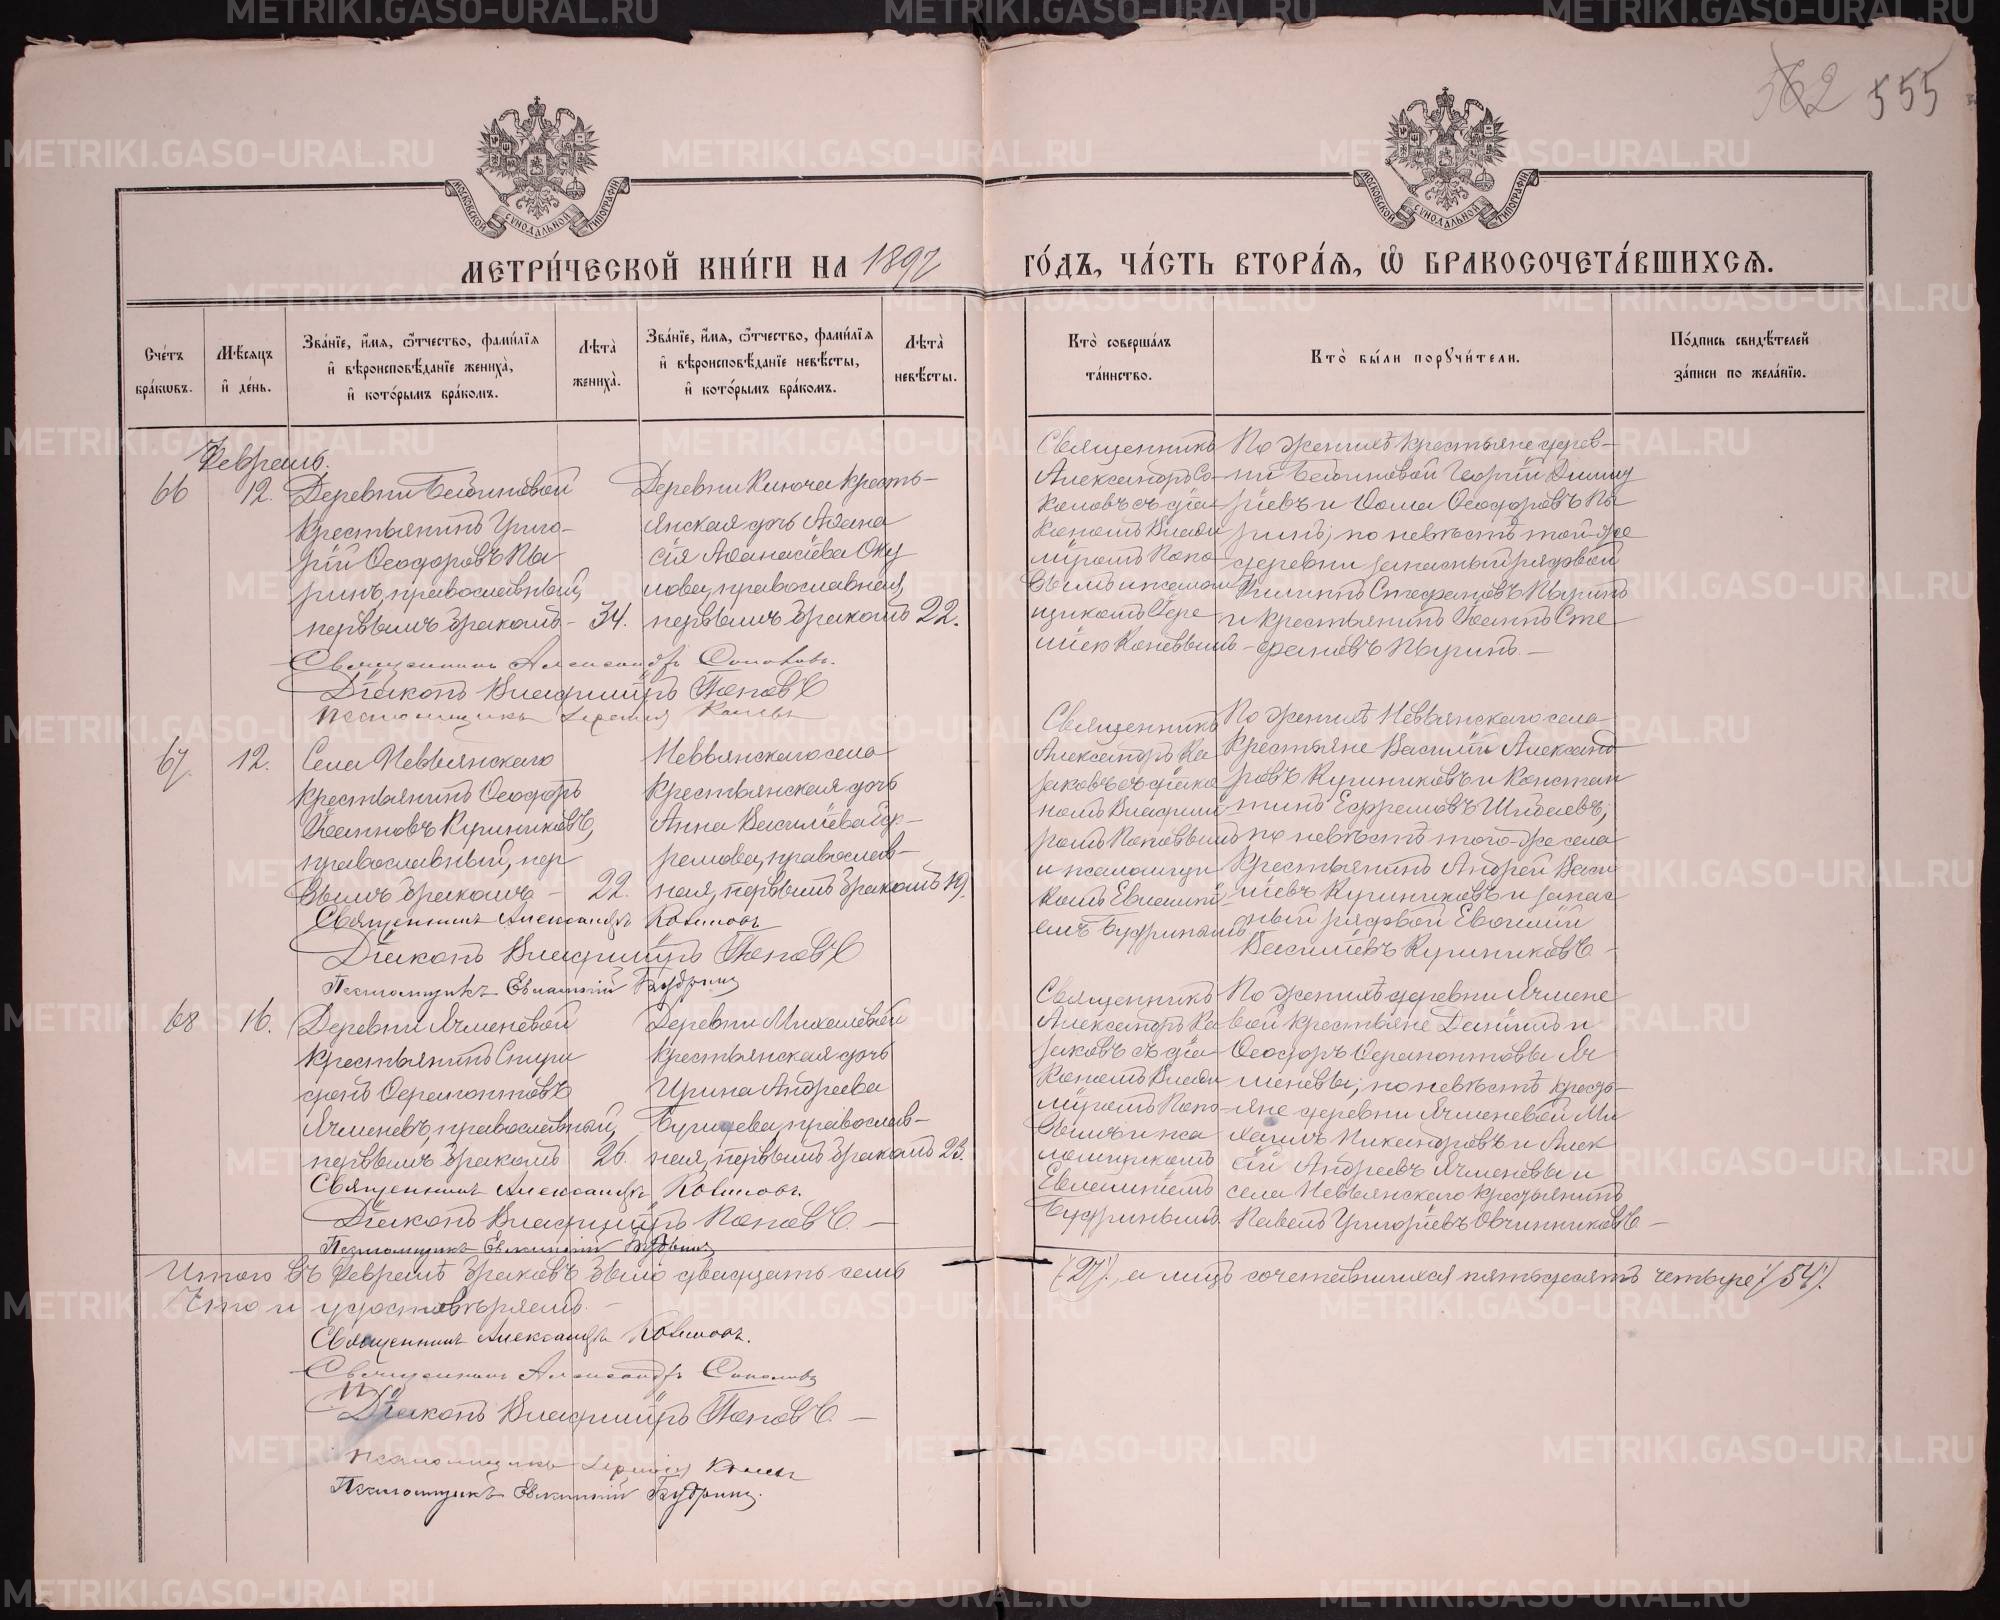 562 555
МОСКОВСКОЙ СѴНОДАЛЬНОЙ ТИПОГРАФІИ
МОСКОВСКОЙ СѴНОДАЛЬНОЙ ТИПОГРАФІИ
МЕТРИ́ЧЕСКОЙ КНИ́ГИ НА 1897
ГО́ДЪ, ЧА́СТЬ ВТОРА́Я, Ѽ БРАКОСОЧЕТА́ВШИХСЯ.
Сче́тъ бра́кѡвъ.
Мѣ́сяцъ и҆ де́нь.
Зва́нїе, и҆́мѧ, ѻ҆́тчество, фамѝлїѧ и҆ вѣроисповѣ́данїе жениха̀, и҆ кото́рымъ бра́комъ.
Лѣ́та жениха̀.
Зва́нїе, и҆́мѧ, ѻ҆́тчество, фами́лїѧ и҆ вѣроисповѣ́данїе невѣ́сты, и҆ кото́рымъ бра́комъ.
Лѣ́та невѣ́сты.
Кто̀ соверша́лъ та́инство.
Кто̀ бы́ли порꙋчи́тели.
По́дпись свидѣ́телей за́писи по жела́нїю.
Февраль.
66 12.
Деревни
Крестьянинъ Григо-
рій Ѳеодоровъ Пы
ринъ, православный,
первымъ бракомъ - 34.
Деревни Ключа кресть-
янская дочь Аѳана
сія Аѳанасіева Оку
лова, православная,
первымъ бракомъ 22.
Священникъ
Александръ Со-
коловъ съ діа-
кономъ Влади
міромъ Попо-
вымъ и псалом
щикомъ Іере-
міею
По женихѣ крестьяне дерев-
ни Георгій Димит
ріевъ и Ѳома Ѳеодоровъ Пы
рины, по невѣстѣ той-же
деревни запасный рядовой
Филиппъ Стефановъ Пыринъ
и крестьянинъ Іоаннъ Сте
фановъ Пыринъ. -
Священникъ Александръ Соколовъ.
Діаконъ Владиміръ Поповъ
Псаломщикъ Іеремія
67. 12.
Села Невьянскаго
крестьянинъ Ѳеодоръ
Іоанновъ Куриниковъ,
православный, пер
вымъ бракомъ - 22.
Невьянскаго села
крестьянская дочь
Анна Васильева Еф-
ремова, православ-
ная, первымъ бракомъ 19.
Священникъ
Александръ Ка
заковъ съ діако
номъ Владимі
ромъ Поповымъ
и псаломщи
комъ Евлампі
емъ Будринымъ
По женихѣ Невьянскаго села
крестьяне Василій Александ
ровъ Куриниковъ и Констан
тинъ Ефремовъ Шибаевъ;
по невѣстѣ того-же села
крестьянинъ Андрей Васи
ліевъ Куриниковъ и запас
ный рядовой Евѳимій
Василіевъ Куриниковъ -
Священникъ Александръ
Діаконъ Владиміръ Поповъ
Псаломщикъ Евлампій Будринъ
68 16.
Деревни Ячменевой
крестьянинъ Спири
донъ Ѳерапонтовъ
Ячменевъ, православный,
первымъ бракомъ 26.
Деревни Михалевой
крестьянская дочь
Ирина Андреева
православ-
ная, первымъ бракомъ 23.
Священникъ
Александръ Ка
заковъ съ діа-
кономъ Влади
міромъ Попо-
вымъ и пса
ломщикомъ
Евлампіемъ
Будринымъ.
По женихѣ деревни Ячмене
вой крестьяне Даніилъ и
Ѳеодоръ Ѳерапонтовы Яч
меневы; по невѣстѣ кресть-
яне деревни Ячменевой Ми
хаилъ Никандровъ и Алек
сій Андреевъ Ячменевы и
села Невьянскаго крестьянинъ
Павелъ Григорьевъ Овчинниковъ -
Священникъ Александръ
Діаконъ Владиміръ Поповъ. -
Псаломщикъ Евлампій Будринъ
Итого въ Февралѣ браковъ было двадцать семь
(27), а лицъ сочетавшихся пятьдесятъ четыре (54).
Что и удостовѣряемъ. -
Священникъ Александръ
Священникъ Александръ Соколовъ
Діаконъ Владиміръ Поповъ. -
Псаломщикъ Іеремія
Псаломщикъ Евлампій Будринъ.
METRIKI.GASO-URAL.RU